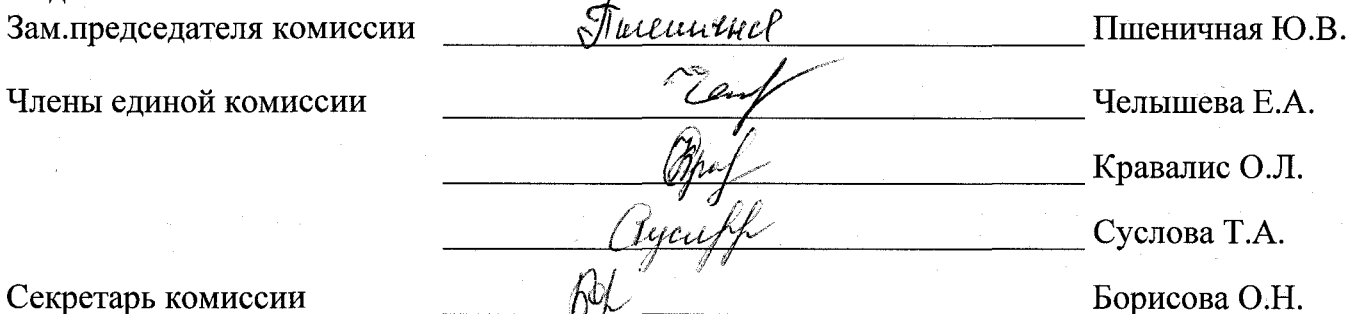 Зам.председателя комиссии Пшеничная Ю.В.
Члены единой комиссии Челышева Е.А.
Кравалис О.Л.
Суслова Т.А.
Секретарь комиссии Борисова О.Н.